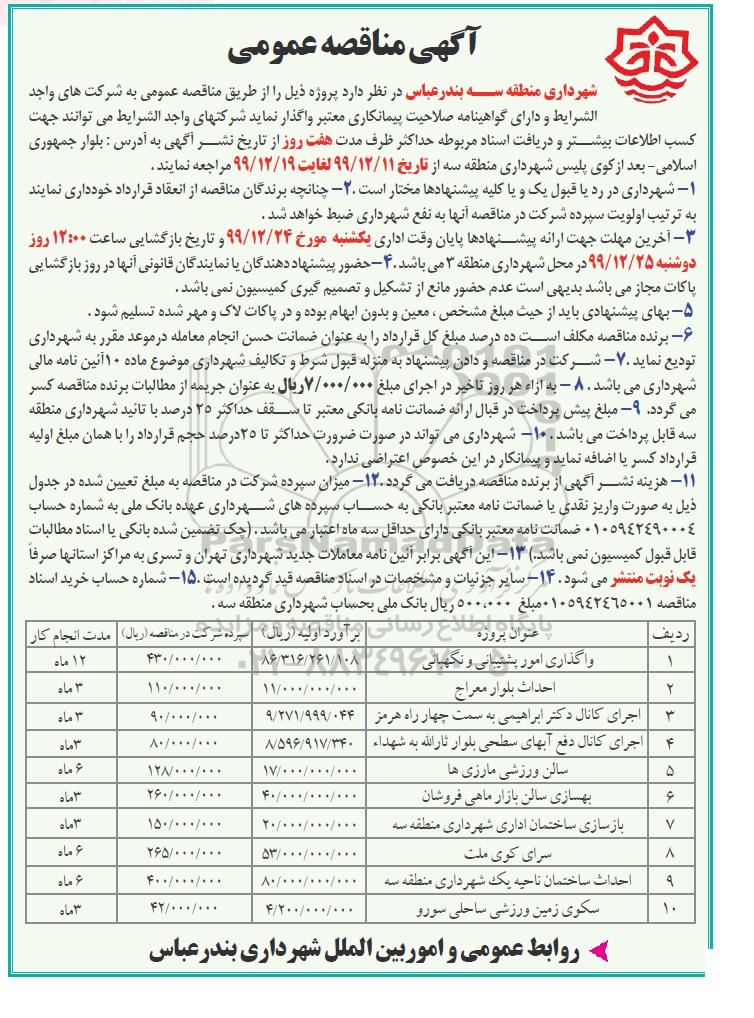 آگهی مناقصه عمومی
شهرداری منطقه سه بندرعباس در نظر دارد پروژه ذیل را از طریق مناقصه عمومی به شرکت های واجد
الشرایط و دارای گواهینامه صلاحیت پیمانکاری معتبر واگذار نماید شرکتهای واجد الشرایط می توانند جهت
کسب اطلاعات بیشتر و دریافت اسناد مربوطه حداکثر ظرف مدت هفت روز از تاریخ نشر آگهی به آدرس : بلوار جمهوری
اسلامی- بعد ازکوی پلیس شهرداری منطقه سه از تاریخ ۹۹/۱۲/۱۱ لغایت ۹۹/۱۲/۱۹ مراجعه نمایند .
۱- شهرداری در رد یا قبول یک و یا کلیه پیشنهادها مختار است .۲- چنانچه برندگان مناقصه از انعقاد قرارداد خودداری نمایند
به ترتیب اولویت سپرده شرکت در مناقصه آنها به نفع شهرداری ضبط خواهد شد .
۳- آخرین مهلت جهت ارائه پیشنهادها پایان وقت اداری یکشنبه مورخ ۹۹/۱۲/۲۴ و تاریخ بازگشایی ساعت ۱۲:۰۰ روز
دوشنبه ۹۹/۱۲/۲۵ در محل شهرداری منطقه ۳ می باشد .۴-حضور پیشنهاد دهندگان یا نمایندگان قانونی آنها در روز بازگشایی
پاکات مجاز می باشد بدیهی است عدم حضور مانع از تشکیل و تصمیم گیری کمیسیون نمی باشد .
۵- بهای پیشنهادی باید از حیث مبلغ مشخص ، معین و بدون ابهام بوده و در پاکات لاک و مهر شده تسلیم شود .
۶- برنده مناقصه مکلف است ده درصد مبلغ کل قرارداد را به عنوان ضمانت حسن انجام معامله درموعد مقرر به شهرداری
تودیع نماید .۷- شرکت در مناقصه و دادن پیشنهاد به منزله قبول شرط و تکالیف شهرداری موضوع ماده ۱۰آئین نامه مالی
شهرداری می باشد . ۸ - به ازاء هر روز تاخیر در اجرای مبلغ ۷/۰۰۰/۰۰۰ریال به عنوان جریمه از مطالبات برنده مناقصه کسر
می گردد. ۹- مبلغ پیش پرداخت در قبال ارائه ضمانت نامه بانکی معتبر تا سقف حداکثر ۲۵ درصد با تائید شهرداری منطقه
سه قابل پرداخت می باشد .۱۰- شهرداری می تواند در صورت ضرورت حداکثر تا ۲۵درصد حجم قرارداد را با همان مبلغ اولیه
قرارداد کسر یا اضافه نماید و پیمانکار در این خصوص اعتراضی ندارد .
۱۱- هزینه نشر آگهی از برنده مناقصه دریافت می گردد .۱۲- میزان سپرده شرکت در مناقصه به مبلغ تعیین شده در جدول
ذیل به صورت واریز نقدی یا ضمانت نامه معتبر بانکی به حساب سپرده های شهرداری عهده بانک ملی به شماره حساب
۰۱۰۵۹۴۲۴۹۰۰۰۴ ضمانت نامه معتبر بانکی دارای حداقل سه ماه اعتبار می باشد . (چک تضمین شده بانکی یا اسناد مطالبات
قابل قبول کمیسیون نمی باشد.) ۱۳- این آگهی برابر آئین نامه معاملات جدید شهرداری تهران و تسری به مراکز استانها صرفاً
یک نوبت منتشر می شود . ۱۴- سایر جزئیات و مشخصات در اسناد مناقصه قید گردیده است .۱۵- شماره حساب خرید اسناد
مناقصه ۰۱۰۵۹۴۲۴۶۵۰۰۱ مبلغ ۵۰۰,۰۰۰ ریال بانک ملی بحساب شهرداری منطقه سه .
ردیف عنوان پروژه برآورد اولیه (ریال) سپرده شرکت در مناقصه (ریال) مدت انجام کار
۱ واگذاری امور پشتیبانی و نگهبانی ۸۶/۳۱۶/۲۶۱/۱۰۸ ۴۳۰/۰۰۰/۰۰۰ ۱۲ ماه
۲ احداث بلوار معراج ۱۱/۰۰۰/۰۰۰/۰۰۰ ۱۱۰/۰۰۰/۰۰۰ ۳ ماه
۳ اجرای کانال دکتر ابراهیمی به سمت چهار راه هرمز ۹/۲۷۱/۹۹۹/۰۴۴ ۹۰/۰۰۰/۰۰۰ ۳ ماه
۴ اجرای کانال دفع آبهای سطحی بلوار ثارالله به شهداء ۸/۵۹۶/۹۱۷/۳۴۰ ۸۰/۰۰۰/۰۰۰ ۳ماه
۵ سالن ورزشی مارزی ها ۱۷/۰۰۰/۰۰۰/۰۰۰ ۱۲۸/۰۰۰/۰۰۰ ۶ ماه
۶ بهسازی سالن بازار ماهی فروشان ۴۰/۰۰۰/۰۰۰/۰۰۰ ۲۶۰/۰۰۰/۰۰۰ ۳ماه
۷ بازسازی ساختمان اداری شهرداری منطقه سه ۲۰/۰۰۰/۰۰۰/۰۰۰ ۱۵۰/۰۰۰/۰۰۰ ۳ماه
۸ سرای کوی ملت ۵۳/۰۰۰/۰۰۰/۰۰۰ ۲۶۵/۰۰۰/۰۰۰ ۶ ماه
۹ احداث ساختمان ناحیه یک شهرداری منطقه سه ۸۰/۰۰۰/۰۰۰/۰۰۰ ۴۰۰/۰۰۰/۰۰۰ ۶ ماه
۱۰ سکوی زمین ورزشی ساحلی سورو ۴/۲۰۰/۰۰۰/۰۰۰ ۴۲/۰۰۰/۰۰۰ ۳ماه
روابط عمومی و اموربین الملل شهرداری بندرعباس
ParsNamadData
پایگاه اطلاع رسانی مناقصه و مزایده